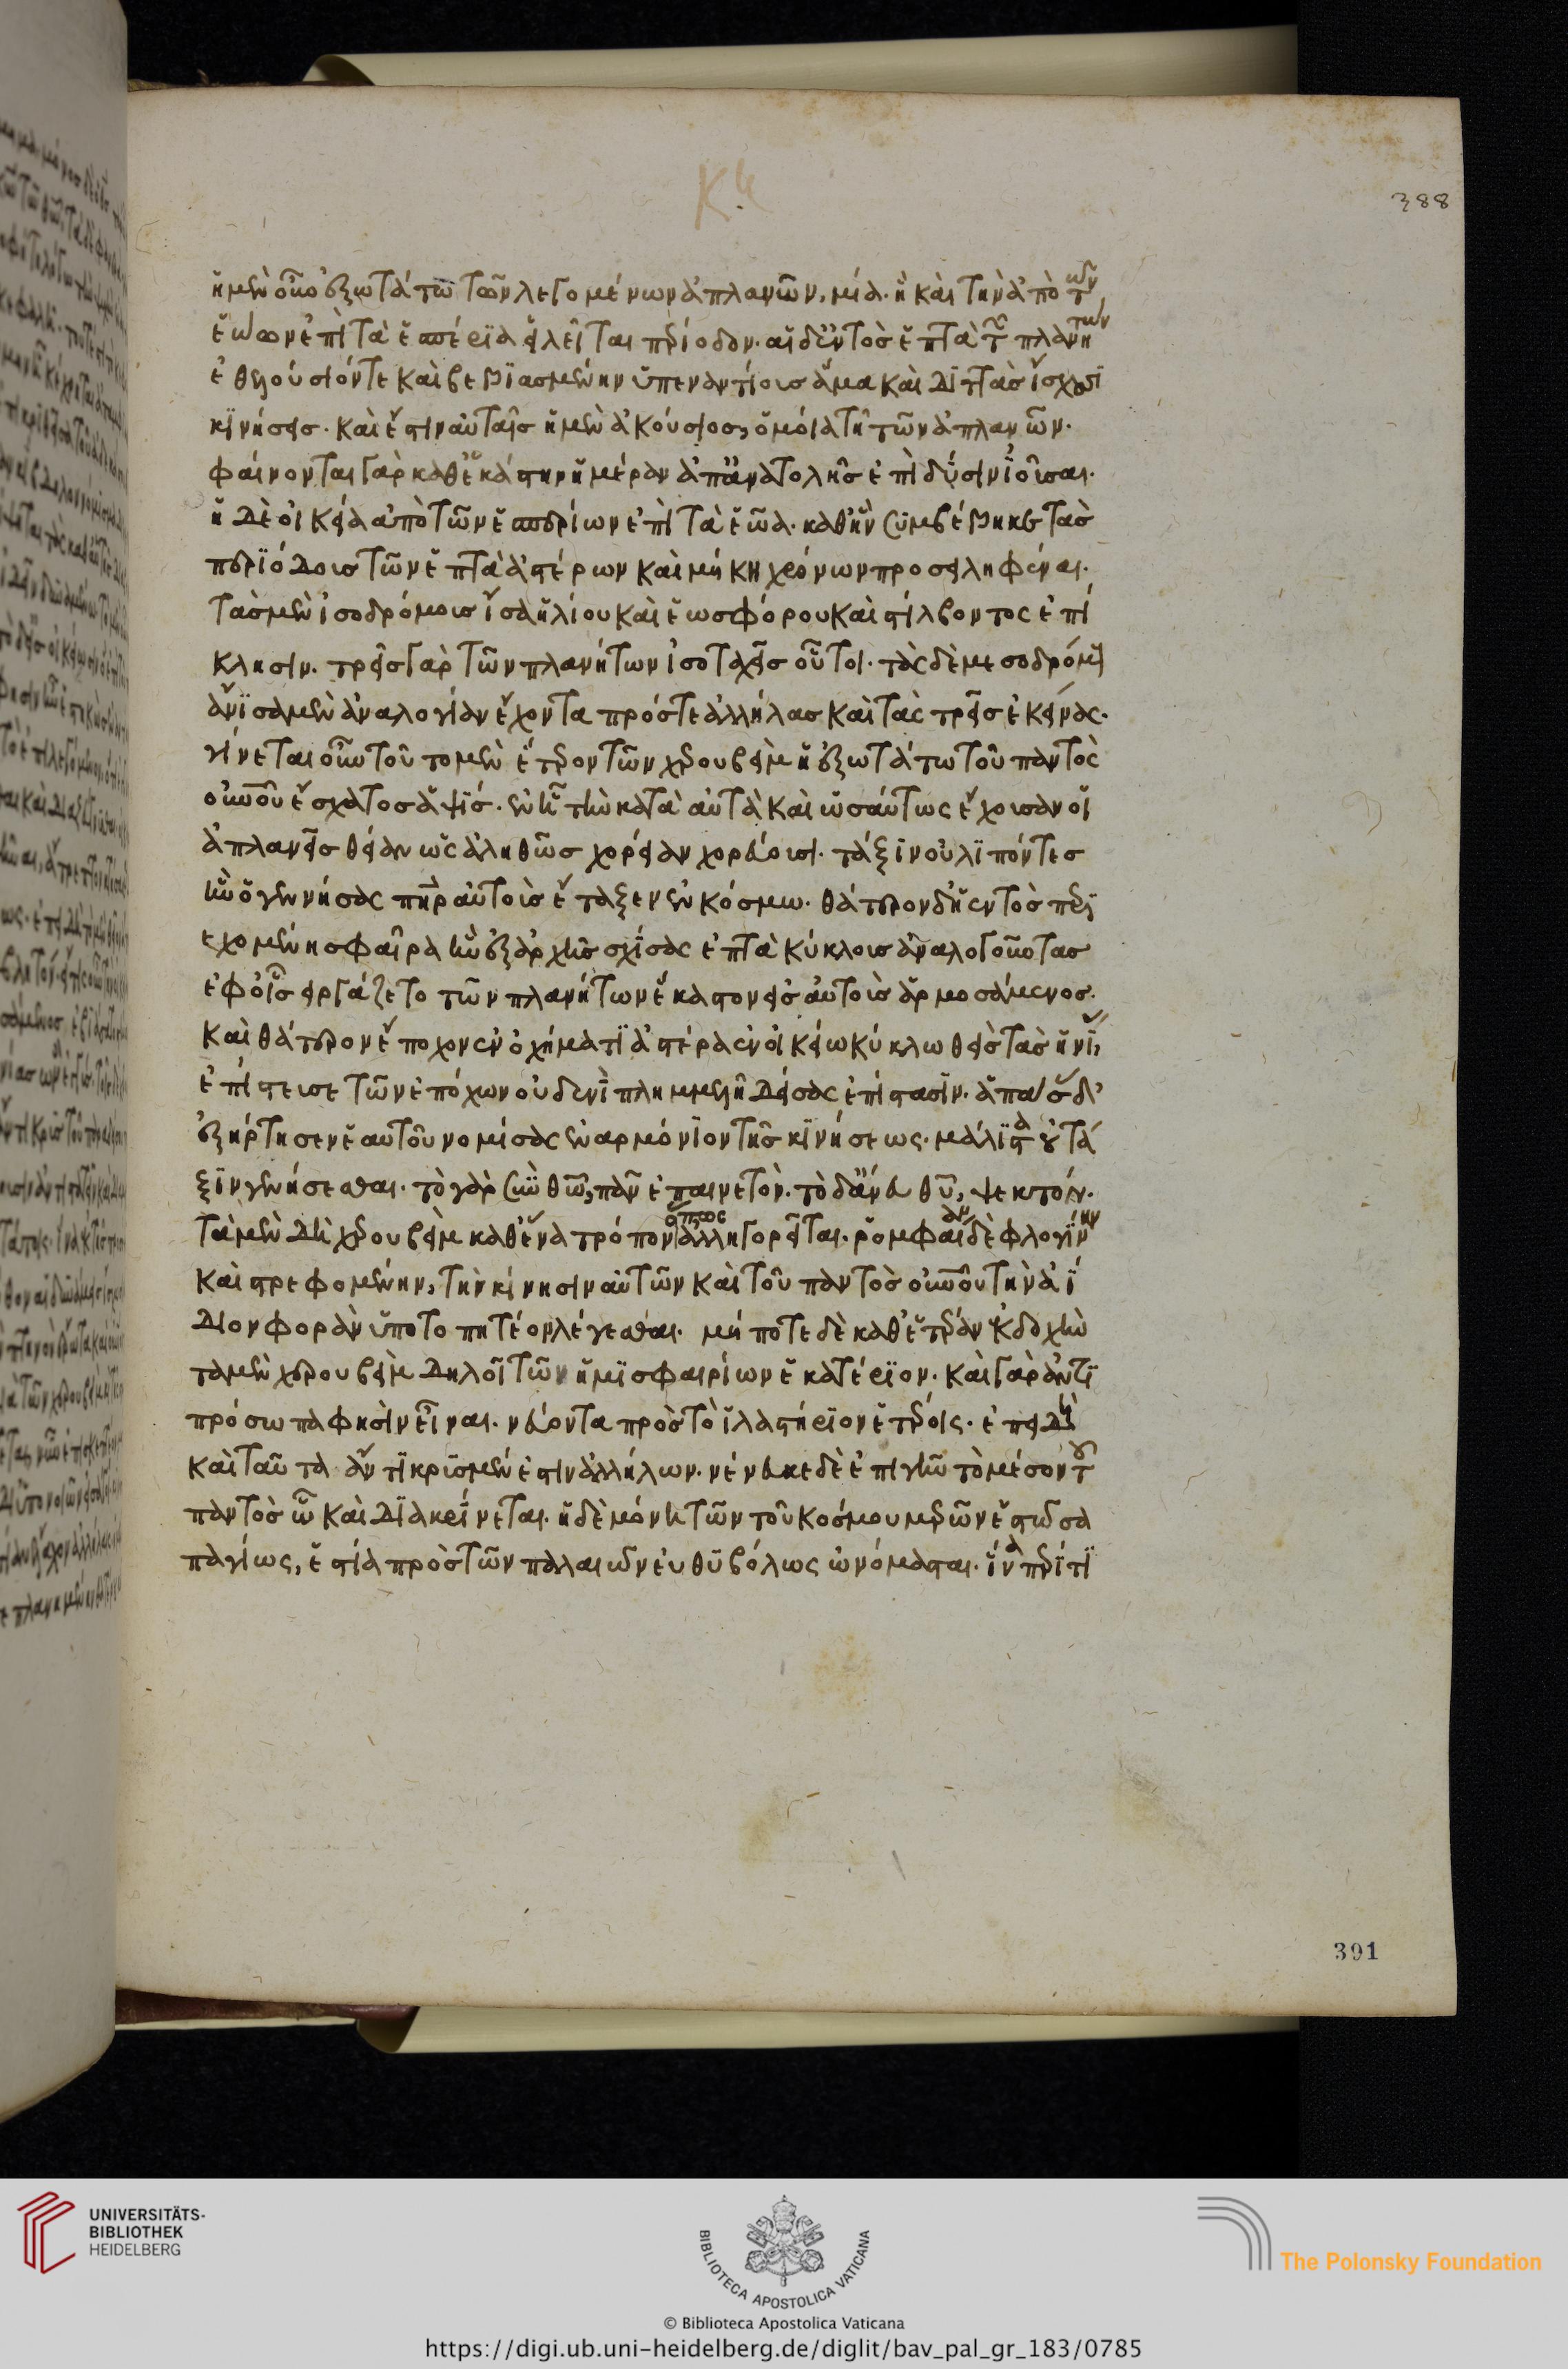 ἡ μὲν οὖν ἐξωτάτω τῶν λεγομένων ἀπλανῶν, μία. ἡ καὶ τὴν ἀπὸ τῶν
ἑώων ἐπὶ τὰ ἑσπέρια εἱλεῖται περίοδον. αἱ δ' ἐντὸς ἑπτὰ τῶν πλανήτων
ἐθελούσιόν τε καὶ βεβιασμένην ὑπεναντίους ἅμα καὶ διττὰς ἴσχουσι
κινήσεις. καὶ ἔστιν αὐταῖς ἡ μὲν ἀκούσιος, ὁμοία τῆ τῶν ἀπλανῶν.
φαίνονται γὰρ καθ' ἑκάστην ἡμέραν ἀπ' ἀνατολῆς ἐπὶ δύσιν ἰοῦσαι.
ἡ δὲ οἰκεία ἀπὸ τῶν ἑσπερίων ἐπὶ τὰ ἑῶα. καθ' ἣν συμβέβηκε τὰς
περιόδους τῶν ἑπτὰ ἀστέρων καὶ μήκη χρόνων προσειληφέναι.
τὰς μὲν ἰσοδρόμους ἴσα ἡλίου καὶ ἑωσφόρου καὶ στίλβοντος ἐπί
κλησιν. τρεῖς γὰρ τῶν πλανήτων ἰσοταχεῖς οὗτοι. τὰς δὲ μεσοδρόμους
ἄνισα μὲν ἀναλογίαν ἔχοντα πρός τε ἀλλήλας καὶ τὰς τρεῖς ἐκείνας.
γίνεται οὖν τοῦτο μὲν ἕτερον τῶν χερουβεὶμ ἡ ἐξωτάτω τοῦ παντὸς
οὐρανοῦ ἔσχατος ἁψίς. ἐν ἧ τὴν κατὰ αὐτὰ καὶ ὡσαύτως ἔχουσαν οἱ
ἀπλανεῖς θείαν ὡς ἀληθῶς χορείαν χορεύουσι. τάξιν οὐ λιπόντες
ἣν ὁ γεννήσας πηρ αὐτοὺς ἔταξεν ἐν κόσμω. θάτερον δ' ἡ ἐντὸς περι
εχομένη σφαῖρα ἣν ἐξ ἀρχῆς σχίσας ἑπτὰ κύκλους ἀναλογοῦντας
ἐφ' οἷς εἰργάζετο τῶν πλανήτων ἕκαστον εἰς αὐτοὺς ἁρμοσάμενος.
καὶ θάτερον ἔποχον ἐν ὀχήματι ἀστέρα ἐν οἰκείω κύκλω θεὶς τὰς ἡνί,
ἐπίστευσε τῶν ἐπόχων οὐδενὶ πλημμελῆ δείσας ἐπίστασιν. ἁπάσας δ'
ἐξήρτησεν ἑαυτοῦ νομίσας ἐναρμόνιον τῆς κινήσεως. μάλιστα οὕτω τά
ξιν γενήσεσθαι. τὸ γὰρ σὺν θῶ, πᾶν ἐπαινετόν. τὸ δ' ἄνευ θυ, ψεκτόν.
τὰ μὲν δὴ χερουβεὶμ καθ' ἕνα τρόπον οὕτως ἀλληγορεῖται. ρομφαίαν δὲ φλογίνην
καὶ στρεφομένην, τὴν κίνησιν αὐτῶν καὶ τοῦ παντὸς οὐρανοῦ τὴν ἀί
διον φορὰν ὑποτοπητέον λέγεσθαι. μή ποτε δὲ καθ' ἑτέραν ἐκδοχὴν
τὰ μὲν χερουβεὶμ δηλοῖ τῶν ἡμισφαιρίων ἑκατέριον. καὶ γὰρ ἀντι
πρόσωπά φησιν εἶναι. νεύοντα πρὸς τὸ ἱλαστήριον ἑτέροις. ἐπειδὴ
καὶ ταῦτα ἄντικρυς μέν ἐστιν ἀλλήλων. νένευκε δὲ ἐπὶ γῆν τὸ μέσον τοῦ
παντὸς ὧ καὶ διακρίνεται. ἡ δὲ μόνη τῶν τοῦ κόσμου μερῶν ἑστῶσα
παγίως, ἑστία πρὸς τῶν παλαιῶν εὐθυβόλως ὠνόμασται. ἵνα περί τι
388
391
UNIVERSITÄTS-
BIBLIOTHEK
HEIDELBERG
BIBLIOTECA APOSTOLICA VATICANA
The Polonsky Foundation
© Biblioteca Apostolica Vaticana
https://digi.ub.uni-heidelberg.de/diglit/bav_pal_gr_183/0785